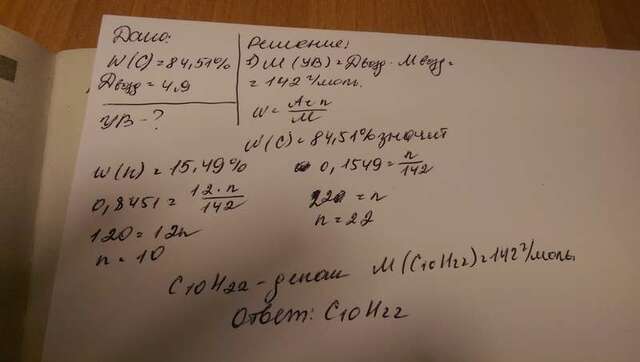 Дано:
W(C) = 84,51%
Dвозд = 4,9
УВ - ?
Решение:
1) M(УВ) = Dвозд · Mвозд =
= 142 г/моль.
W = Ar·n / M
W(C) = 84,51% значит
W(H) = 15,49%
0,8451 = 12·n / 142
120 = 12n
n = 10
0,1549 = n / 142
22 = n
n = 22
C10H22 - декан M(C10H22) = 142 г/моль.
Ответ: C10H22